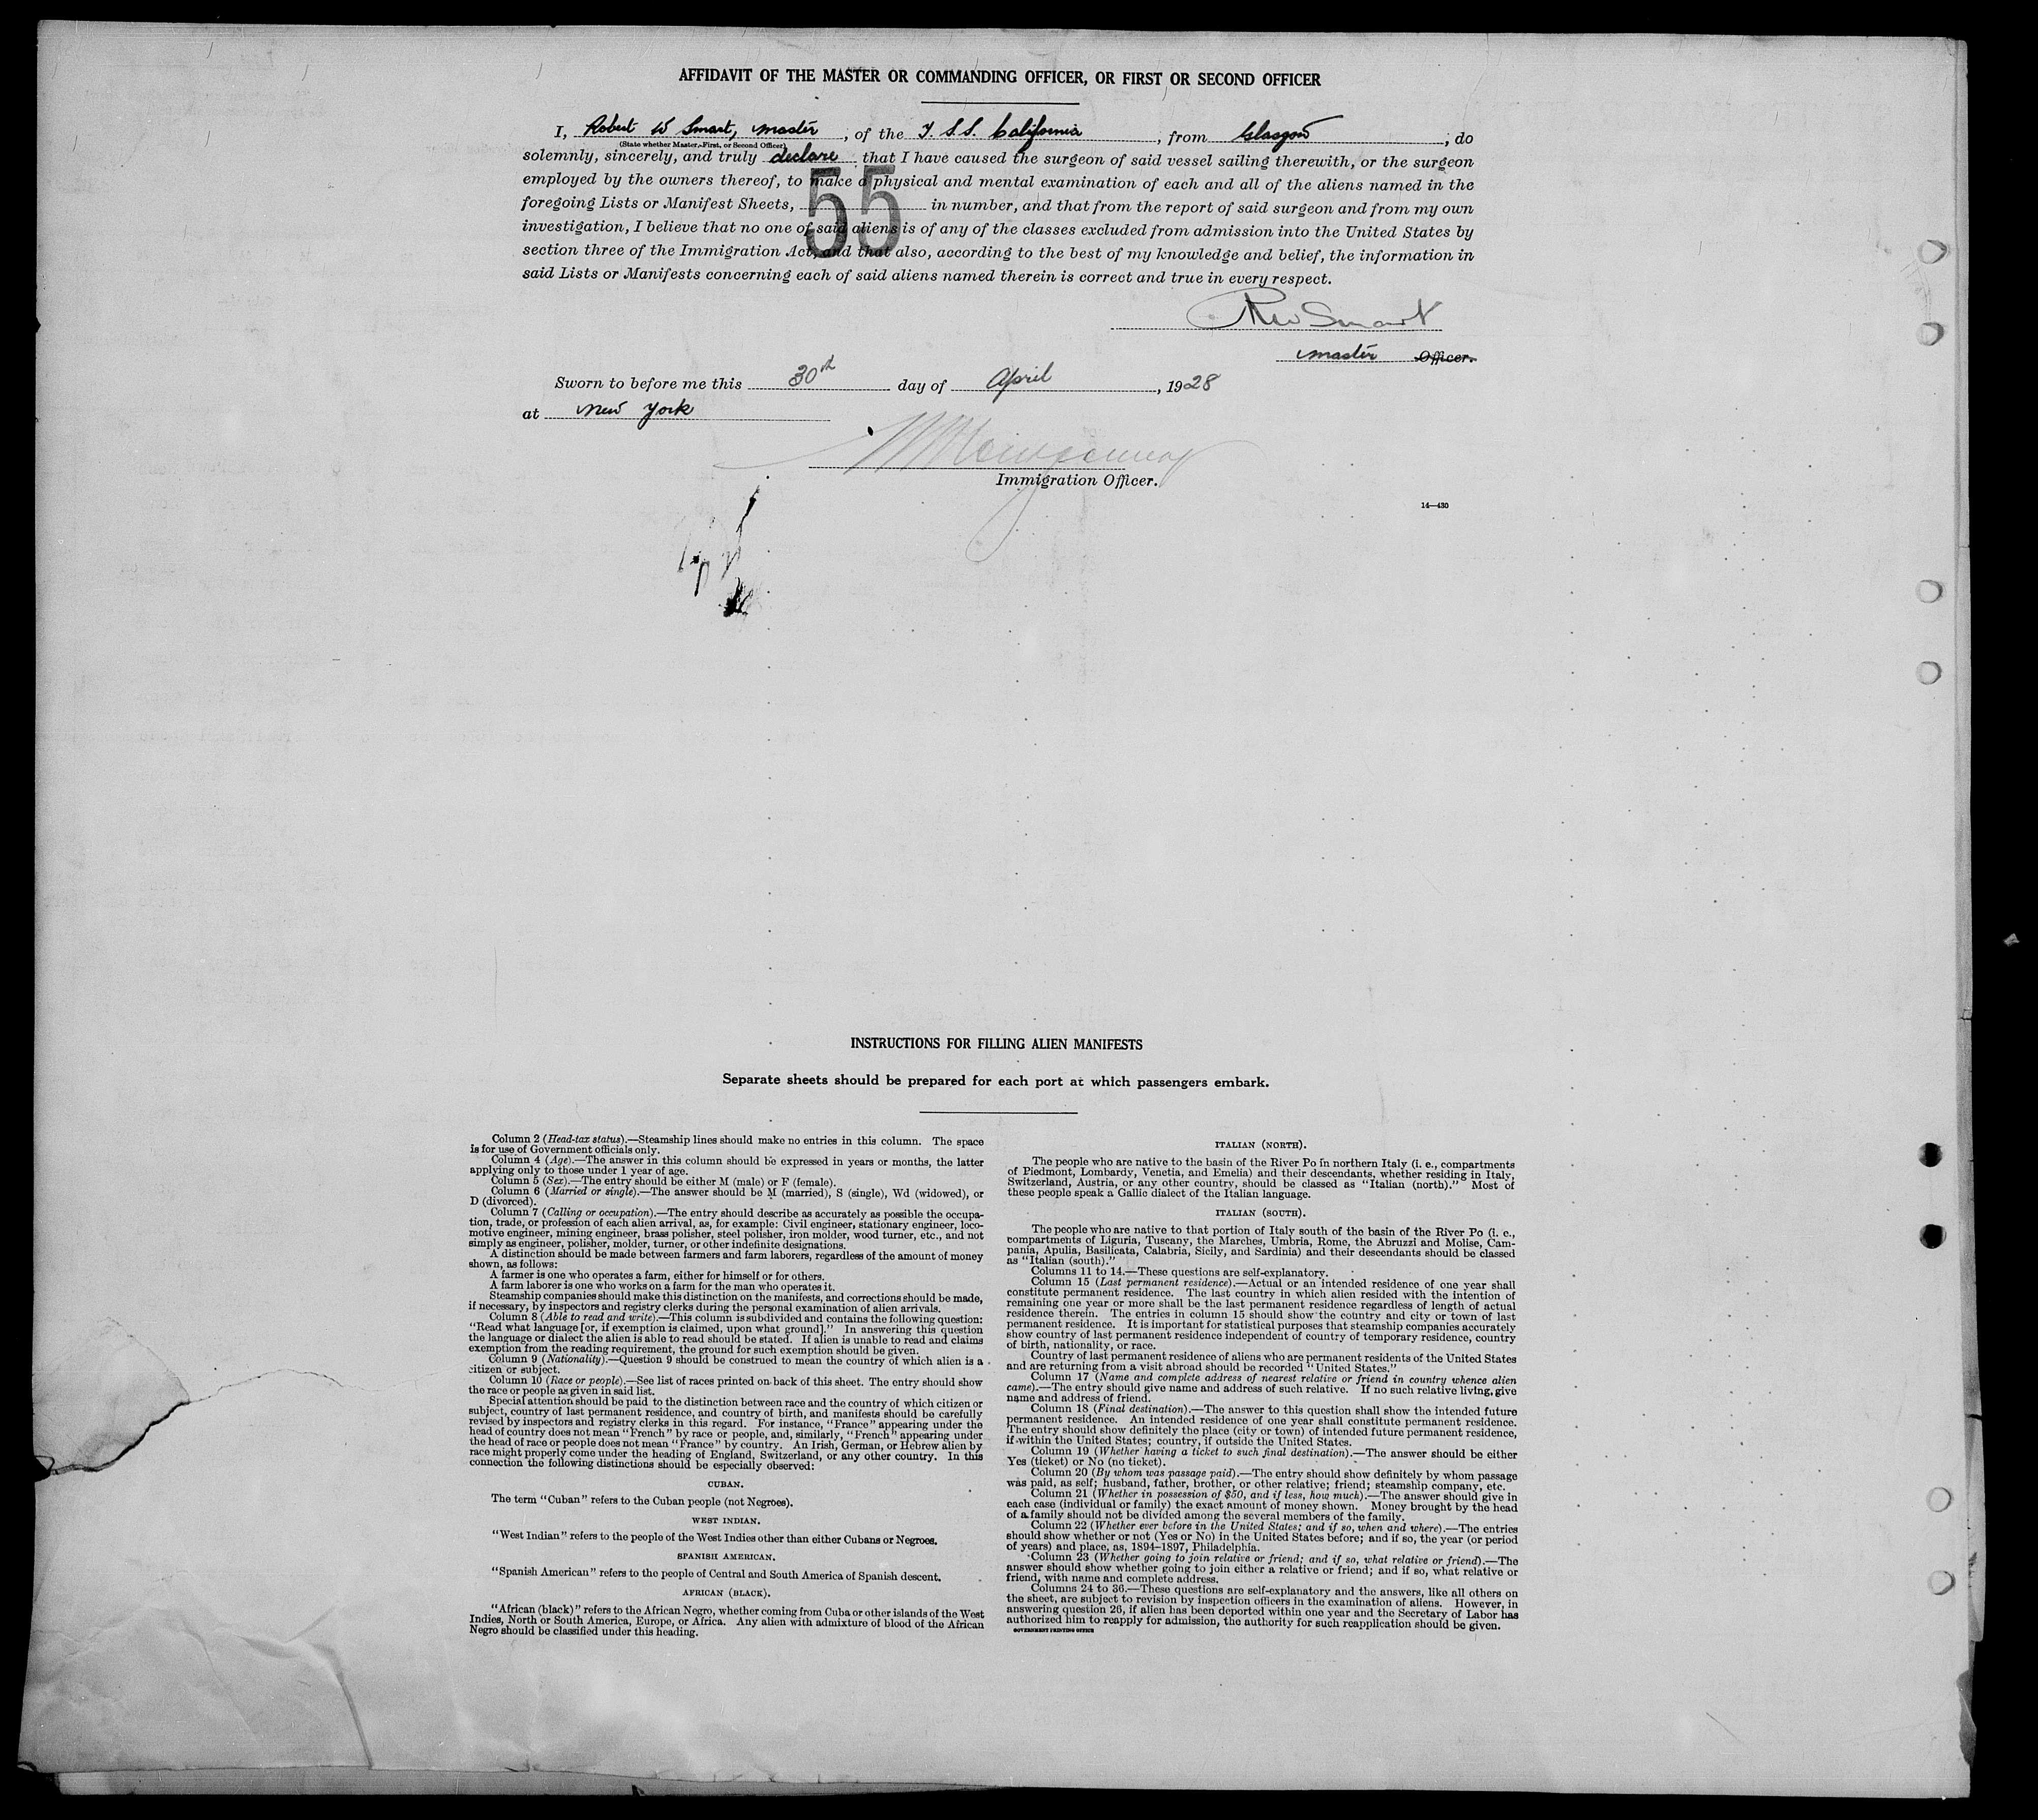 AFFIDAVIT OF THE MASTER OR COMMANDING OFFICER, OR FIRST OR SECOND OFFICER
I, Robert W Smart, master, of the T. S.S. California, from Glasgow; do
(State whether Master, First, or Second Officer)
solemnly, sincerely, and truly declare that I have caused the surgeon of said vessel sailing therewith, or the surgeon
employed by the owners thereof, to make a physical and mental examination of each and all of the aliens named in the
foregoing Lists or Manifest Sheets, 55 in number, and that from the report of said surgeon and from my own
investigation, I believe that no one of said aliens is of any of the classes excluded from admission into the United States by
section three of the Immigration Act, and that also, according to the best of my knowledge and belief, the information in
said Lists or Manifests concerning each of said aliens named therein is correct and true in every respect.
RW Smart
master Officer.
Sworn to before me this 30th day of April, 1928
at New York
Immigration Officer.
14—430
INSTRUCTIONS FOR FILLING ALIEN MANIFESTS
Separate sheets should be prepared for each port at which passengers embark.
Column 2 (Head-tax status).—Steamship lines should make no entries in this column. The space
is for use of Government officials only.
Column 4 (Age).—The answer in this column should be expressed in years or months, the latter
applying only to those under 1 year of age.
Column 5 (Sex).—The entry should be either M (male) or F (female).
Column 6 (Married or single).—The answer should be M (married), S (single), Wd (widowed), or
D (divorced).
Column 7 (Calling or occupation).—The entry should describe as accurately as possible the occupa-
tion, trade, or profession of each alien arrival, as, for example: Civil engineer, stationary engineer, loco-
motive engineer, mining engineer, brass polisher, steel polisher, iron molder, wood turner, etc., and not
simply as engineer, polisher, molder, turner, or other indefinite designations.
A distinction should be made between farmers and farm laborers, regardless of the amount of money
shown, as follows:
A farmer is one who operates a farm, either for himself or for others.
A farm laborer is one who works on a farm for the man who operates it.
Steamship companies should make this distinction on the manifests, and corrections should be made,
if necessary, by inspectors and registry clerks during the personal examination of alien arrivals.
Column 8 (Able to read and write).—This column is subdivided and contains the following question:
"Read what language [or, if exemption is claimed, upon what ground]." In answering this question
the language or dialect the alien is able to read should be stated. If alien is unable to read and claims
exemption from the reading requirement, the ground for such exemption should be given.
Column 9 (Nationality).—Question 9 should be construed to mean the country of which alien is a
citizen or subject.
Column 10 (Race or people).—See list of races printed on back of this sheet. The entry should show
the race or people as given in said list.
Special attention should be paid to the distinction between race and the country of which citizen or
subject, country of last permanent residence, and country of birth, and manifests should be carefully
revised by inspectors and registry clerks in this regard. For instance, "France" appearing under the
head of country does not mean "French" by race or people, and, similarly, "French" appearing under
the head of race or people does not mean "France" by country. An Irish, German, or Hebrew alien by
race might properly come under the heading of England, Switzerland, or any other country. In this
connection the following distinctions should be especially observed:
CUBAN.
The term "Cuban" refers to the Cuban people (not Negroes).
WEST INDIAN.
"West Indian" refers to the people of the West Indies other than either Cubans or Negroes.
SPANISH AMERICAN.
"Spanish American" refers to the people of Central and South America of Spanish descent.
AFRICAN (BLACK).
"African (black)" refers to the African Negro, whether coming from Cuba or other islands of the West
Indies, North or South America, Europe, or Africa. Any alien with admixture of blood of the African
Negro should be classified under this heading.
ITALIAN (NORTH).
The people who are native to the basin of the River Po in northern Italy (i. e., compartments
of Piedmont, Lombardy, Venetia, and Emelia) and their descendants, whether residing in Italy,
Switzerland, Austria, or any other country, should be classed as "Italian (north)." Most of
these people speak a Gallic dialect of the Italian language.
ITALIAN (SOUTH).
The people who are native to that portion of Italy south of the basin of the River Po (i. e.,
compartments of Liguria, Tuscany, the Marches, Umbria, Rome, the Abruzzi and Molise, Cam-
pania, Apulia, Basilicata, Calabria, Sicily, and Sardinia) and their descendants should be classed
as "Italian (south)."
Columns 11 to 14.—These questions are self-explanatory.
Column 15 (Last permanent residence).—Actual or an intended residence of one year shall
constitute permanent residence. The last country in which alien resided with the intention of
remaining one year or more shall be the last permanent residence regardless of length of actual
residence therein. The entries in column 15 should show the country and city or town of last
permanent residence. It is important for statistical purposes that steamship companies accurately
show country of last permanent residence independent of country of temporary residence, country
of birth, nationality, or race.
Country of last permanent residence of aliens who are permanent residents of the United States
and are returning from a visit abroad should be recorded "United States."
Column 17 (Name and complete address of nearest relative or friend in country whence alien
came).—The entry should give name and address of such relative. If no such relative living, give
name and address of friend.
Column 18 (Final destination).—The answer to this question shall show the intended future
permanent residence. An intended residence of one year shall constitute permanent residence.
The entry should show definitely the place (city or town) of intended future permanent residence,
if within the United States; country, if outside the United States.
Column 19 (Whether having a ticket to such final destination).—The answer should be either
Yes (ticket) or No (no ticket).
Column 20 (By whom was passage paid).—The entry should show definitely by whom passage
was paid, as self; husband, father, brother, or other relative; friend; steamship company, etc.
Column 21 (Whether in possession of $50, and if less, how much).—The answer should give in
each case (individual or family) the exact amount of money shown. Money brought by the head
of a family should not be divided among the several members of the family.
Column 22 (Whether ever before in the United States; and if so, when and where).—The entries
should show whether or not (Yes or No) in the United States before; and if so, the year (or period
of years) and place, as, 1894–1897, Philadelphia.
Column 23 (Whether going to join relative or friend; and if so, what relative or friend).—The
answer should show whether going to join either a relative or friend; and if so, what relative or
friend, with name and complete address.
Columns 24 to 36.—These questions are self-explanatory and the answers, like all others on
the sheet, are subject to revision by inspection officers in the examination of aliens. However, in
answering question 26, if alien has been deported within one year and the Secretary of Labor has
authorized him to reapply for admission, the authority for such reapplication should be given.
GOVERNMENT PRINTING OFFICE